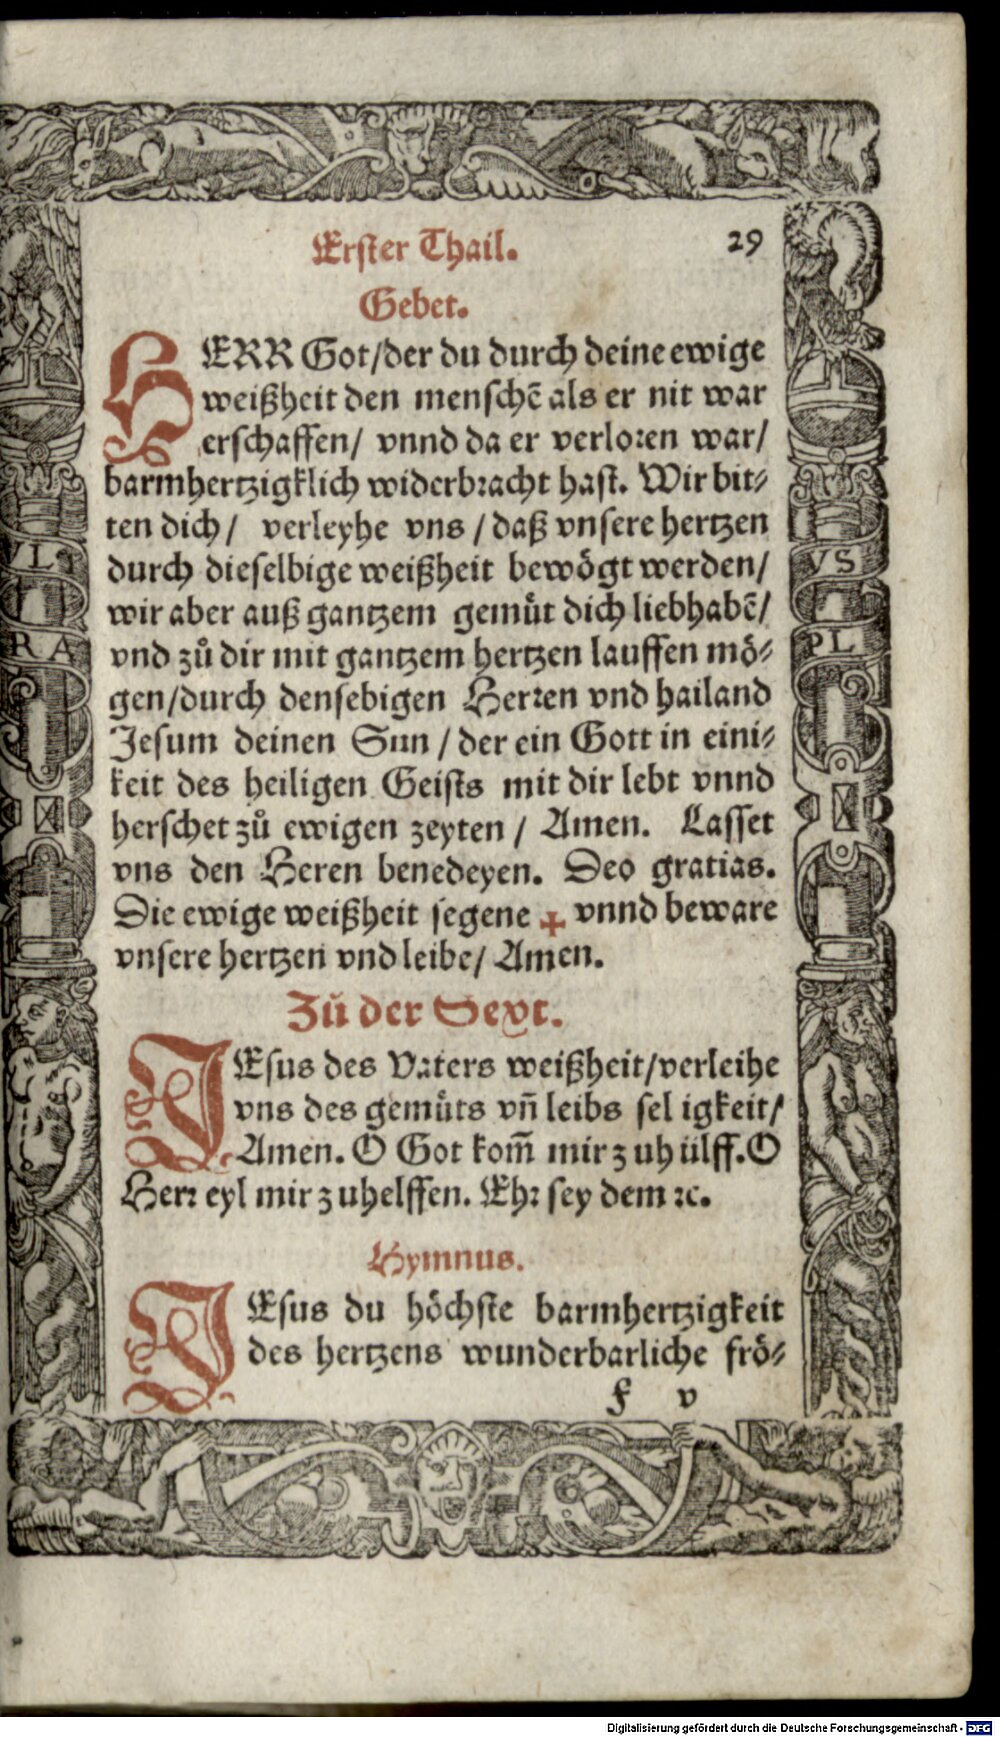 Erster Thail. 29
Gebet.
HERR Got/der du durch deine ewige
weißheit den menschē als er nit war
erschaffen/ vnnd da er verloren war/
barmhertzigklich widerbracht hast. Wir bit-
ten dich/ verleyhe vns/daß vnsere hertzen
durch dieselbige weißheit bewögt werden/
wir aber auß gantzem gemüt dich liebhabē/
vnd zů dir mit gantzem hertzen lauffen mö-
gen/durch densebigen Herren vnd hailand
Jesum deinen Sun/der ein Gott in eini-
keit des heiligen Geists mit dir lebt vnnd
herschet zů ewigen zeyten/ Amen. Lasset
vns den Heren benedeyen. Deo gratias.
Die ewige weißheit segene ✚ vnnd beware
vnsere hertzen vnd leibe/ Amen.
Zů der Sext.
JEsus des Vaters weißheit/verleihe
vns des gemüts vñ leibs sel igkeit/
Amen. O Got kom̄ mir zuhülff. O
Herr eyl mir zuhelffen. Ehr sey dem ꝛc.
Hymnus.
JEsus du höchste barmhertzigkeit
des hertzens wunderbarliche frö-
f v
VLT
RA
VS
PL
Digitalisierung gefördert durch die Deutsche Forschungsgemeinschaft - DFG